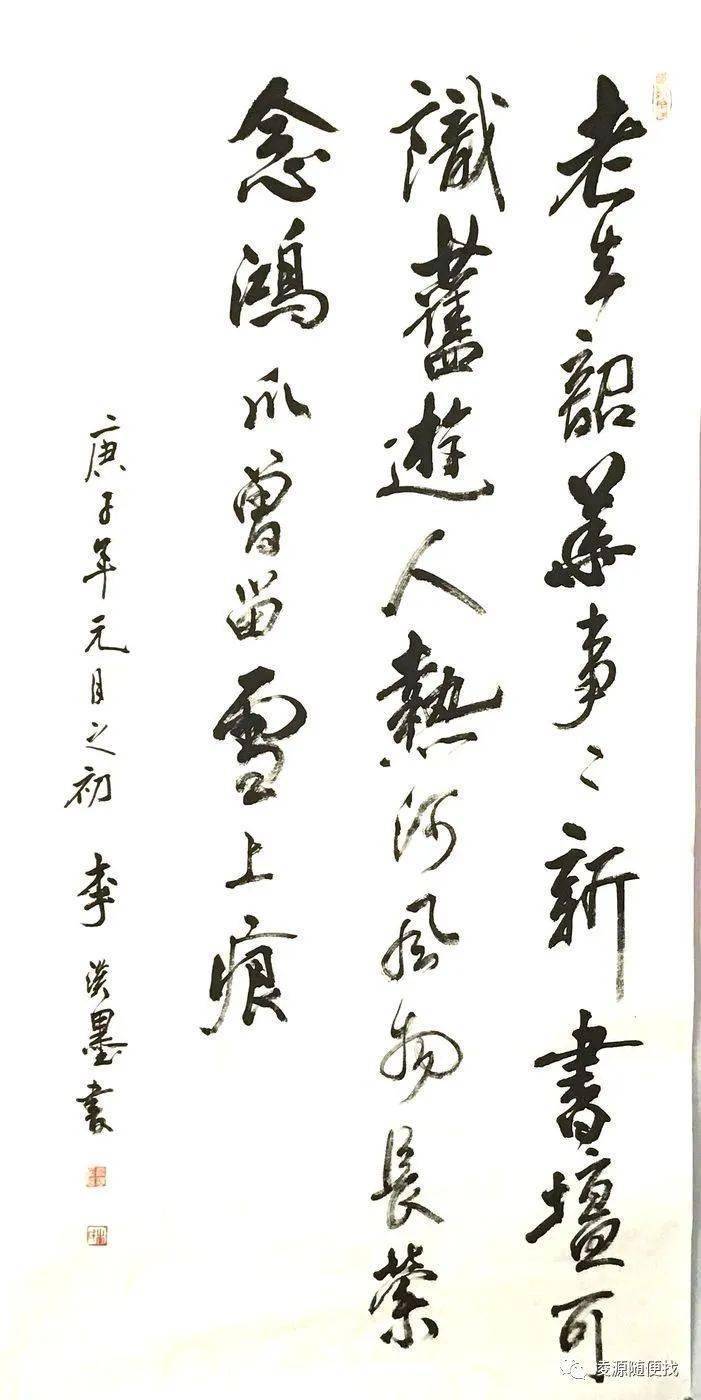 老年韶華事〻新書壇可
識舊遊人熱河風物長縈
念鴻爪曾留雪上痕
庚子年元月之初 李漢墨書
凌源随便找